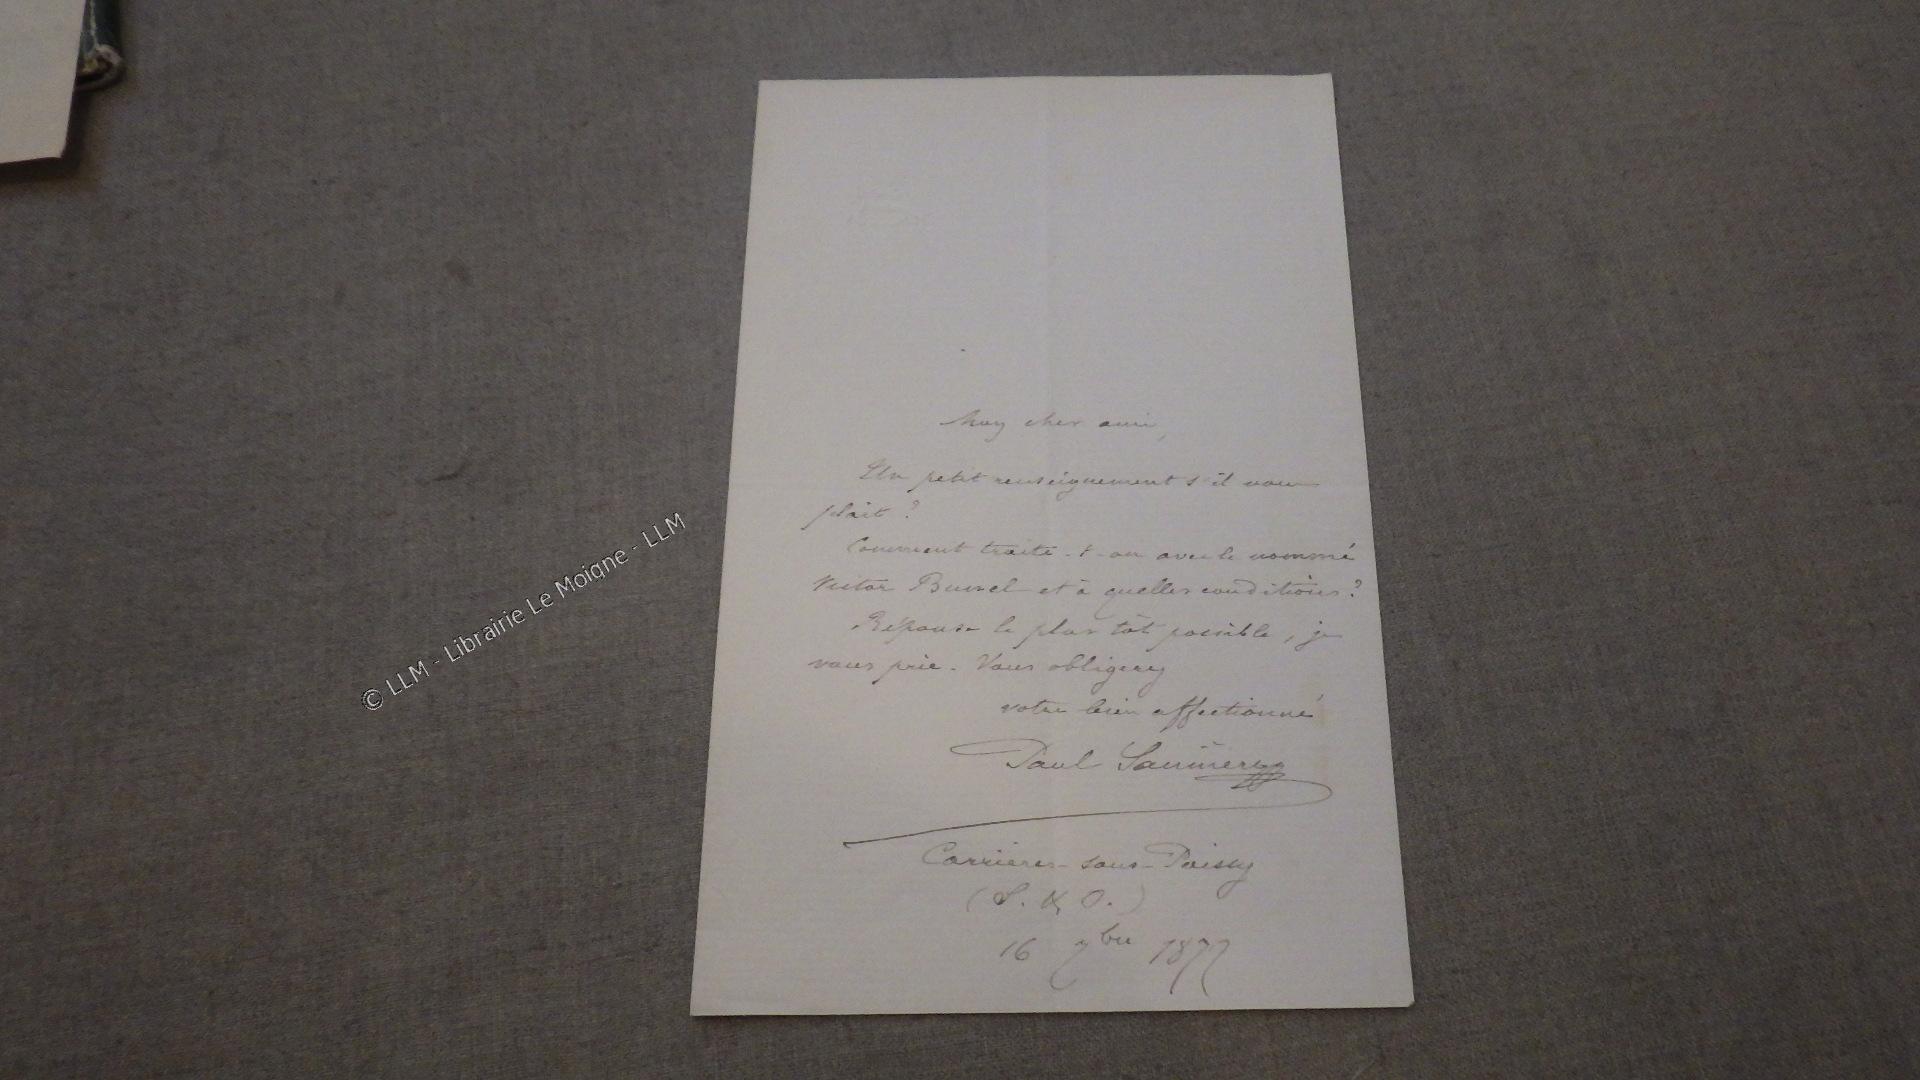 Mon cher ami,
Un petit renseignement s'il vous
plait ?
Comment traite-t-on avec le nommé
Victor Bunel et à quelles conditions ?
Réponse le plus tôt possible, je
vous prie. Vous obligerez
votre bien affectionné
Paul Saunière
Carrières-sous-Poissy
(S. & O.)
16 7bre 1877
© LLM - Librairie Le Moigne - LLM